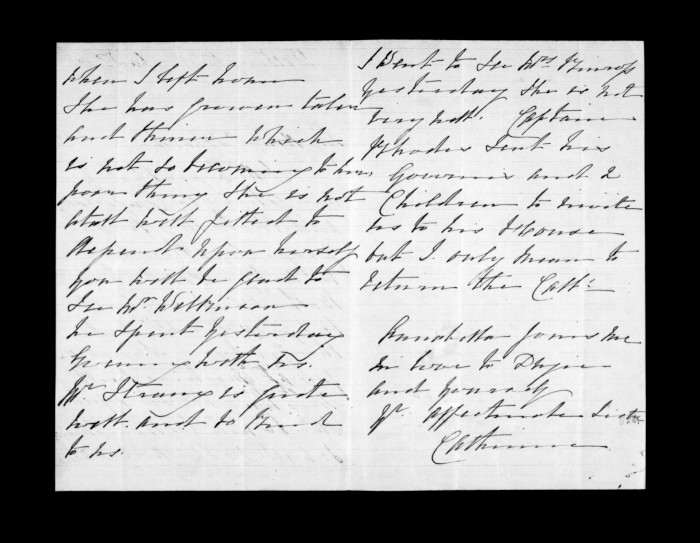 when I left home
She has growen taler
and thiner which
is not so becoming to her,
poor thing She is not
atall well fitted to
depend upon herself
you will be glad to
See Mr. Wilkinson
he spent yesterday
Evening with us.
Mr Strang is quite
well. and so kind
to us.
I Went to See Mrs Kinross
yesterday She is not
very well. Captain
Rhodes Sent his
Governess and 2
Children to invite
us to his House
but I only mean to
return the Call.
Annabella joins me
in love to
and yourself
Yr. Affectionate Sister
Catherine